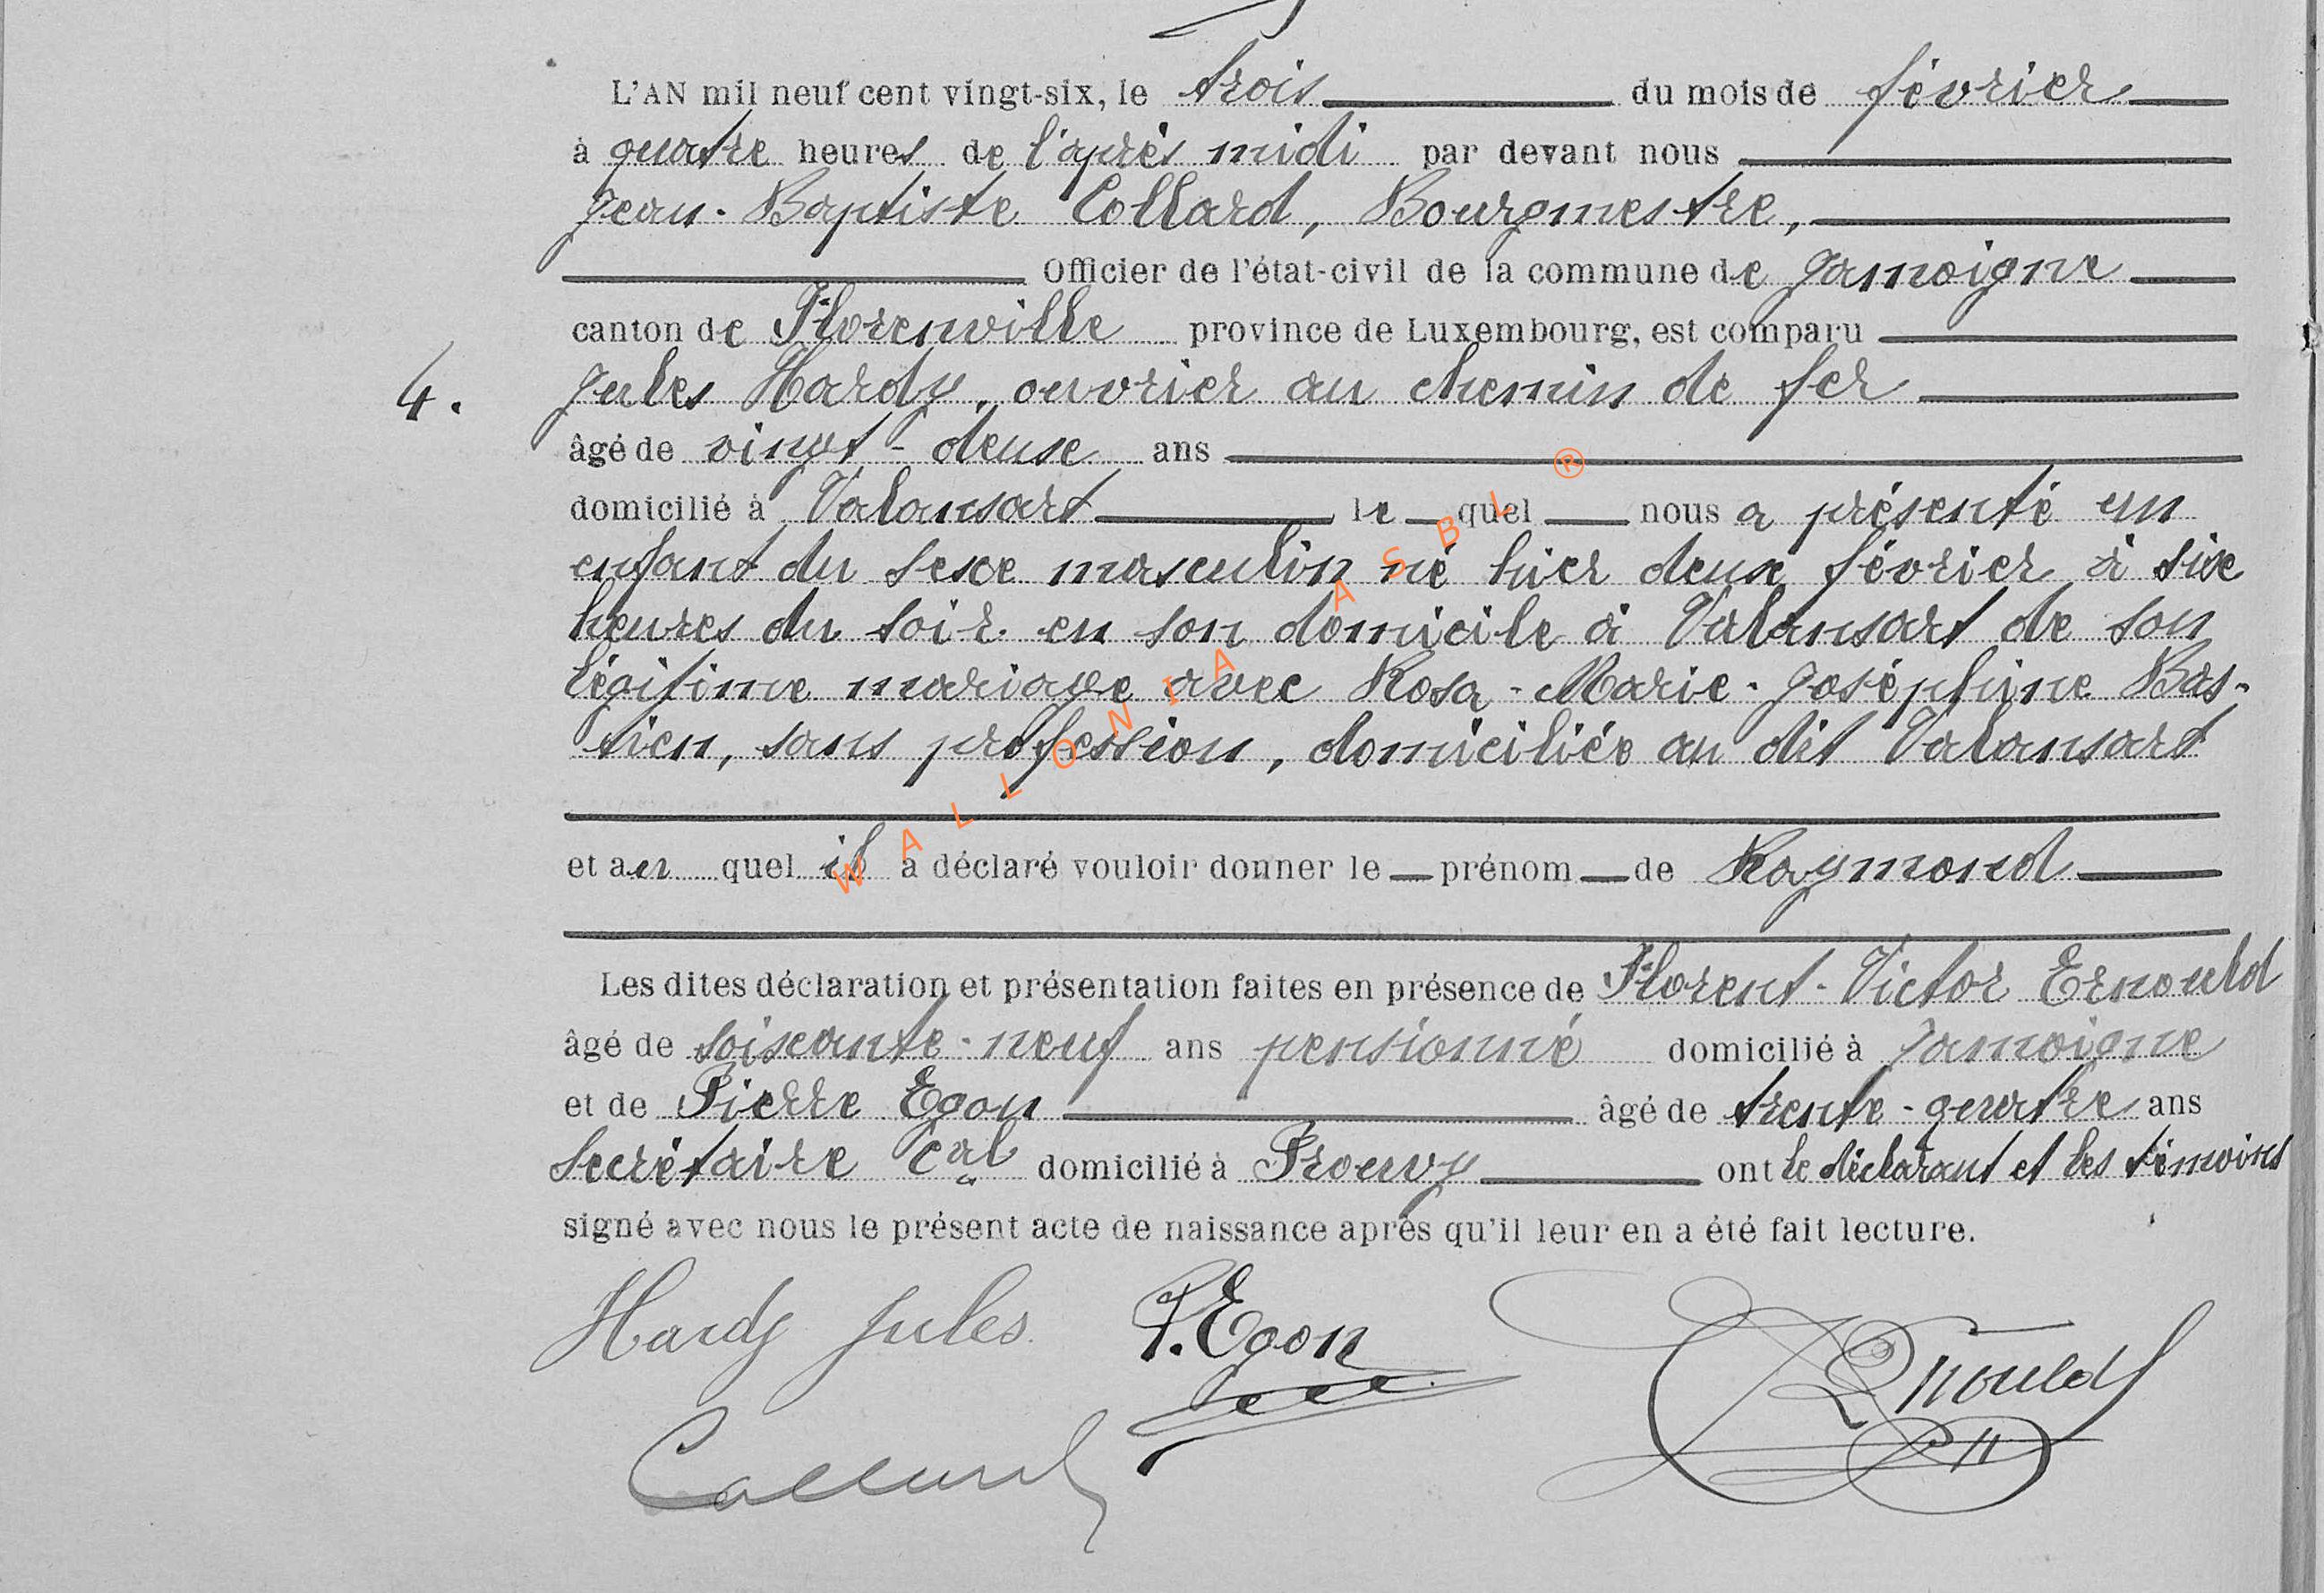 L'AN mil neuf cent vingt-six, le trois du mois de février
à quatre heures de l'après midi par devant nous
Jean-Baptiste Collard, Bourgmestre,
Officier de l'état-civil de la commune de Jamoigne
canton de Florenville province de Luxembourg, est comparu
4. Jules Hardy, ouvrier au chemin de fer
âgé de vingt-deux ans
domicilié à Valansart le quel nous a présenté un
enfant du sexe masculin né hier deux février à six
heures du soir en son domicile à Valansart de son
légitime mariage avec Rosa-Marie-Joséphine Bas-
tien, sans profession, domiciliée au dit Valansart
et au quel il a déclaré vouloir donner le prénom de Raymond
Les dites déclaration et présentation faites en présence de Florent-Victor Ernould
âgé de soixante-neuf ans pensionné domicilié à Jamoigne
et de Pierre Egon âgé de trente-quatre ans
secrétaire cal domicilié à Prouvy ont le déclarant et les témoins
signé avec nous le présent acte de naissance après qu'il leur en a été fait lecture.
Hardy Jules P. Egon Ernould
Collard
WALLONIA ASBL ®